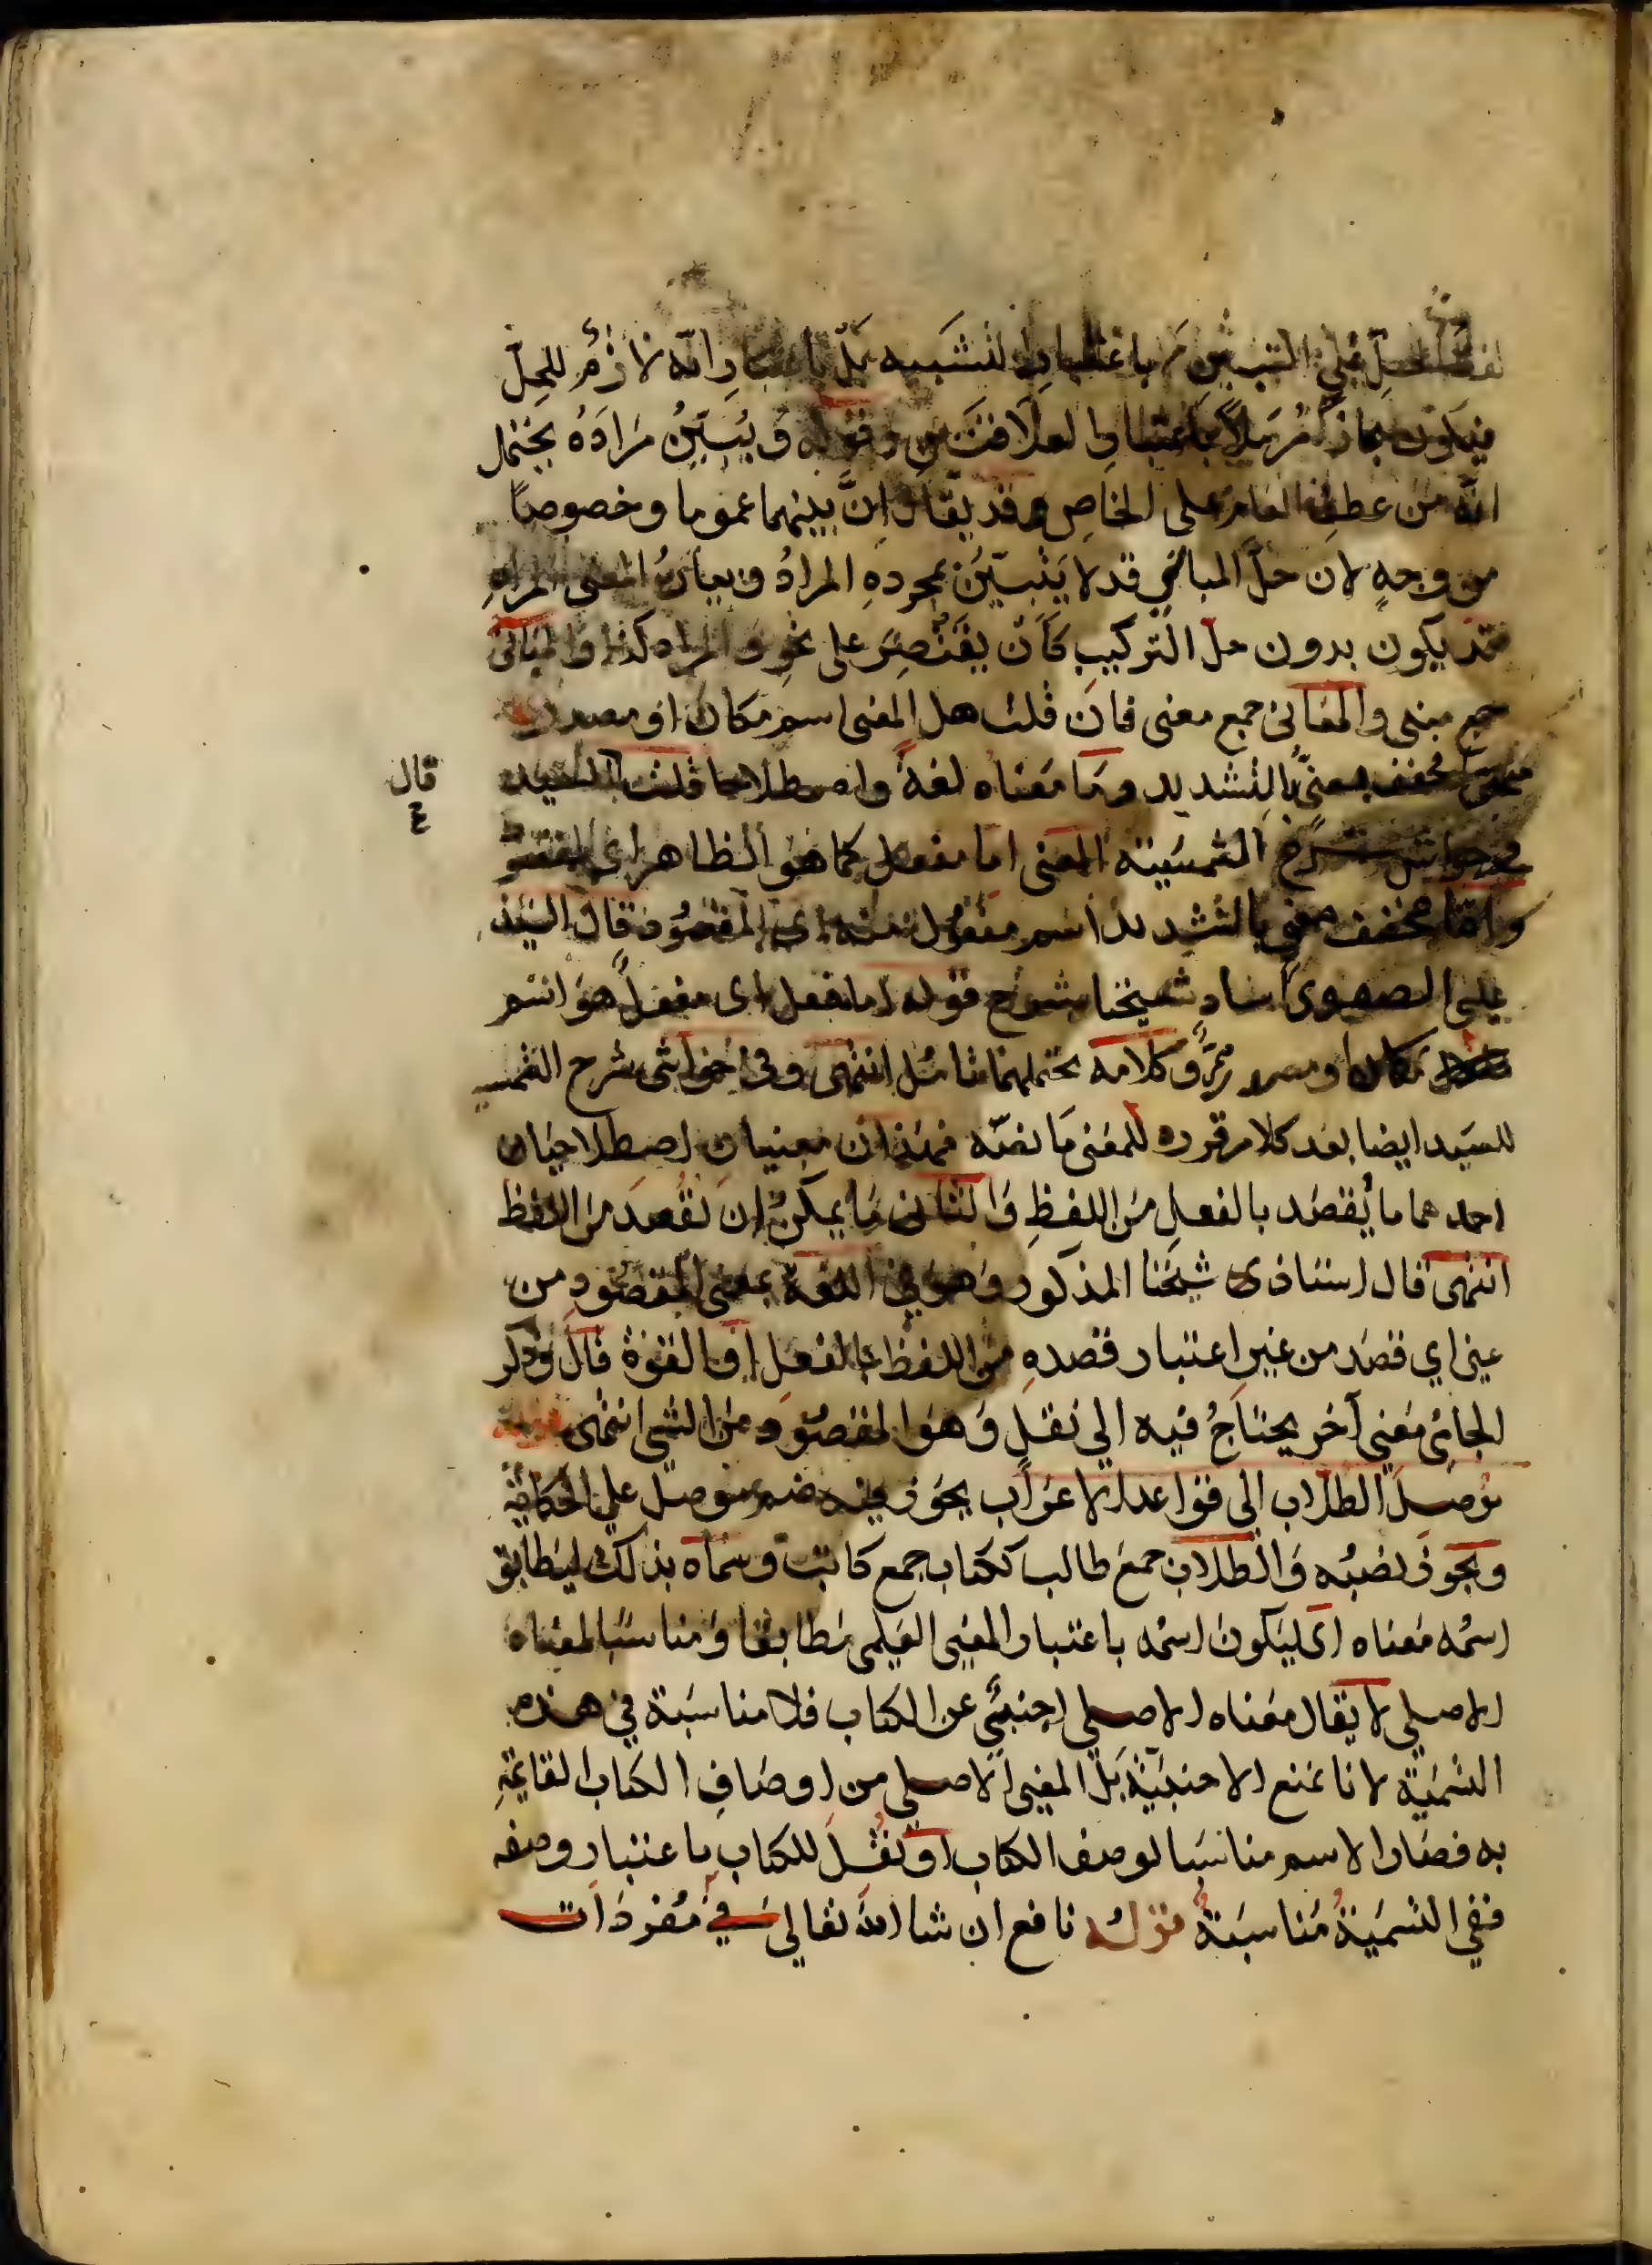 لفظ الحل علي التبيين لا باعتبار التشبيه بل باعتبار انه لازم للحل
فيكون مجازا مرسلا باعتبار العلاقتين وقوله ويبين مراده يحتمل
انه من عطف العام على الخاص وقد يقال ان بينهما عموما وخصوصا
من وجه لان حل المباني قد لا يتبين بمجرده المراد وبيان المعنى المراد
قد يكون بدون حل التركيب كان يقتصر على نحو والمراد كذا والمباني
جمع مبنى والمعانى جمع معنى فان قلت هل المعنى اسم مكان او مصدر
مخفف معنى بالتشديد وما معناه لغة واصطلاحا قلت قال السيد
في حواشى شرح الشمسية المعنى اما مفعل كما هو الظاهر اى المقصد
واما مخفف معنى بالتشديد اسم مفعول منه اى المقصود قال السيد
على الصفوى استاد شيخنا قوله اما مفعل اى مفعل هو اسم
مكان او مصدر وكلامه يحتملهما تامل انتهى وفى حواشى شرح الشمسيه
للسيد ايضا بعد كلام قرره للمعنى ما نصه فهذان معنيان اصطلاحيان
احدهما ما يقصد بالفعل من اللفظ والثانى ما يمكن ان يقصد من اللفظ
انتهى قال استاذى شيخنا المذكور وهو في اللغة بمعنى المقصود من
عنى اي قصد من غير اعتبار قصده من اللفظ بالفعل او القوة قال وذكر
الجامى معنى آخر يحتاج فيه الى نقل وهو المقصود من الشى انتهى
موصل الطلاب الى قواعد الاعراب يجوز فيه ضم موصل على الحكاية
ويجوز نصبه والطلاب جمع طالب ككتاب جمع كاتب وسماه بذلك ليطابق
اسمه معناه اى ليكون اسمه باعتبار المعنى العلمى مطابقا ومناسبا لمعناه
الاصلي لا يقال معناه الاصلي اجنبي عن الكتاب فلا مناسبة في هذه
التسمية لانا نمنع الاجنبية بل المعنى الاصلي من اوصاف الكتاب القايمة
به فصار الاسم مناسبا لوصف الكتاب او نقل للكتاب باعتبار وصفه
ففي التسمية مناسبة قوله نافع ان شا الله تعالي في مفردات